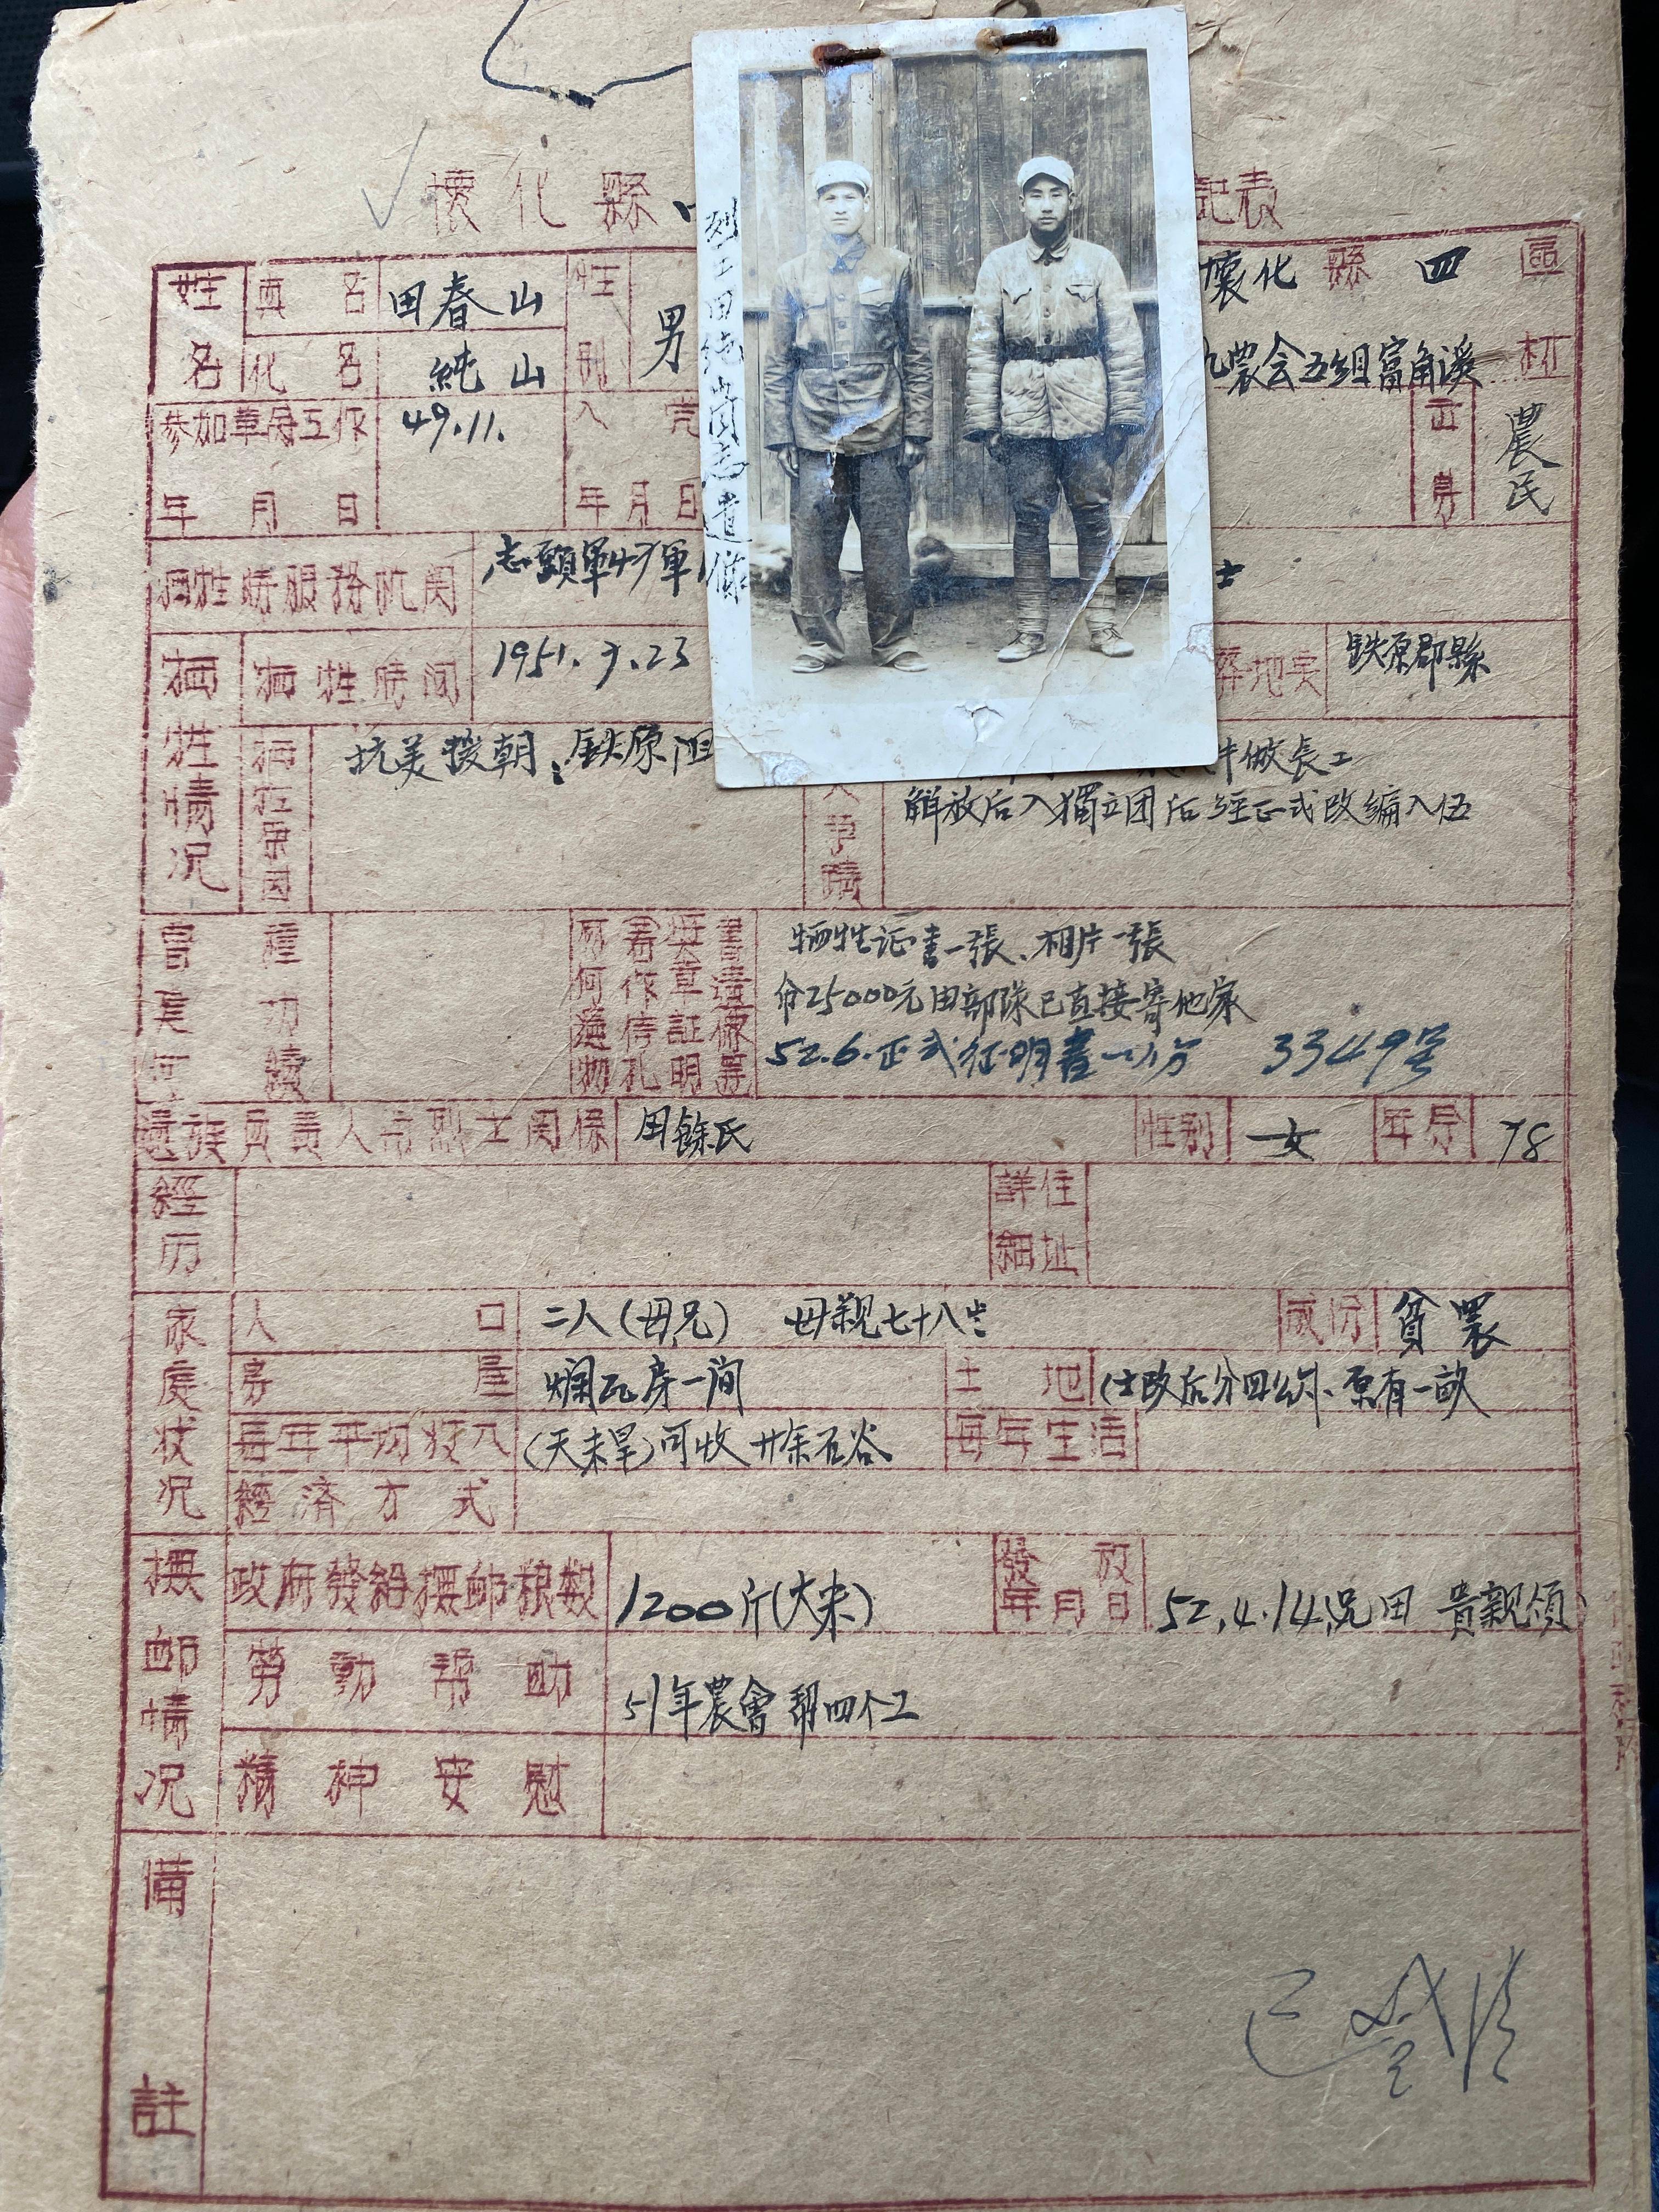 懷化縣
記表
烈士田純山同志遺像
姓名 真名 田春山 性別 男
懷化縣四區
化名 純山
九農会五組富角溪 村
参加革命工作 年月日 49.11.
入党 年月日
出身 農民
牺牲時服務机関 志願軍47軍
士
牺牲情况 牺牲時间 1951.9.23
葬地点 鉄原郡縣
牺牲原因 抗美援朝:鉄原阻
牛做長工
解放后入獨立团后经正式改編入伍
曾 種 功績
牺牲证書一張、相片一張
25000元由部隊已直接寄他家
52.6.正式征明書一份 3349号
遺族負責人与烈士関係 田餘氏 性别 女 年令 78
經历
詳細住址
家庭状况 人口 二人(母兄) 母親七十八岁 成份 貧農
房屋 烂瓦房一间 土地 (土改后分四 原有一畝
每年平均收入 (天未旱)可收廿余石谷 每年生活
經濟方式
撫卹情况 政府發給撫卹粮数 1200斤(大米) 發放年月日 52.4.14.兄田 貴親領
劳動帮助 51年農會帮四个工
精神安慰
備註
已登